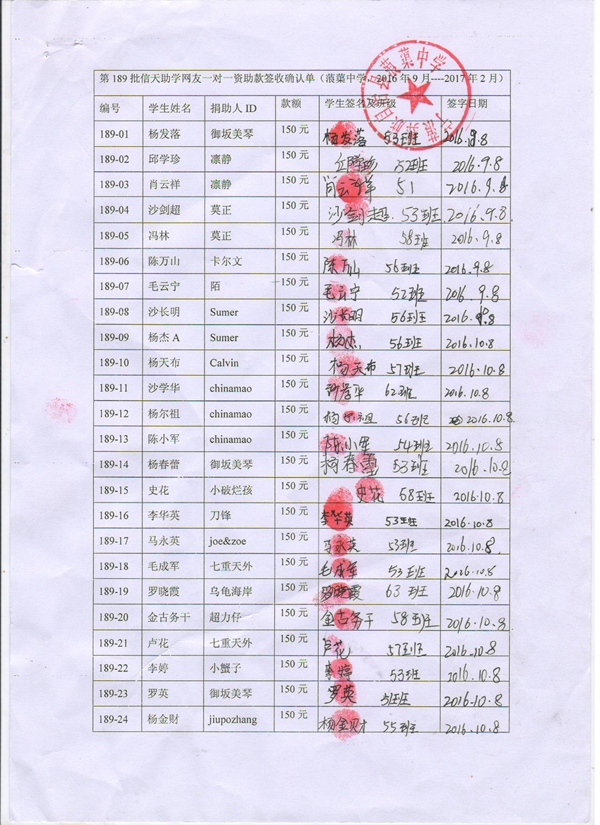 第 189 批信天助学网友一对一资助款签收确认单（蒗蕖中学，2016 年 9 月----2017 年 2 月）
编号 学生姓名 捐助人 ID 款额 学生签名及班级 签字日期
189-01 杨发落 御坂美琴 150 元 杨发落 53班班 2016.9.8
189-02 邱学珍 凛静 150 元 52班班 2016.9.8
189-03 肖云祥 凛静 150 元 肖云祥 51 2016.9.8
189-04 沙剑超 莫正 150 元 沙剑超 53班班 2016.9.8
189-05 冯林 莫正 150 元 冯林 58班 2016.9.8
189-06 陈万山 卡尔文 150 元 陈万山 56班 2016.9.8
189-07 毛云宁 陌 150 元 毛云宁 52班班 2016.9.8
189-08 沙长明 Sumer 150 元 沙长明 56班班 2016.9.8
189-09 杨杰 A Sumer 150 元 杨杰 56班班 2016.10.8
189-10 杨天布 Calvin 150 元 杨天布 57班班 2016.10.8
189-11 沙学华 chinamao 150 元 62班班 2016.10.8
189-12 杨尔祖 chinamao 150 元 杨尔祖 56班 2016.10.8
189-13 陈小军 chinamao 150 元 陈小军 54班班 2016.10.8
189-14 杨春蕾 御坂美琴 150 元 杨春蕾 53班班 2016.10.8
189-15 史花 小破烂孩 150 元 史花 68班班 2016.10.8
189-16 李华英 刀锋 150 元 李华英 53班班 2016.10.8
189-17 马永英 joe&zoe 150 元 马永英 53班 2016.10.8
189-18 毛成军 七重天外 150 元 毛成军 53班班 2016.10.8
189-19 罗晓霞 乌龟海岸 150 元 罗晓霞 63班 2016.10.8
189-20 金古务干 超力仔 150 元 金古务干 58班班 2016.10.8
189-21 卢花 七重天外 150 元 卢花 57班班 2016.10.8
189-22 李婷 小蟹子 150 元 李婷 53班 2016.10.8
189-23 罗英 御坂美琴 150 元 罗英 51班班 2016.10.8
189-24 杨金财 jiupozhang 150 元 杨金财 55班 2016.10.8